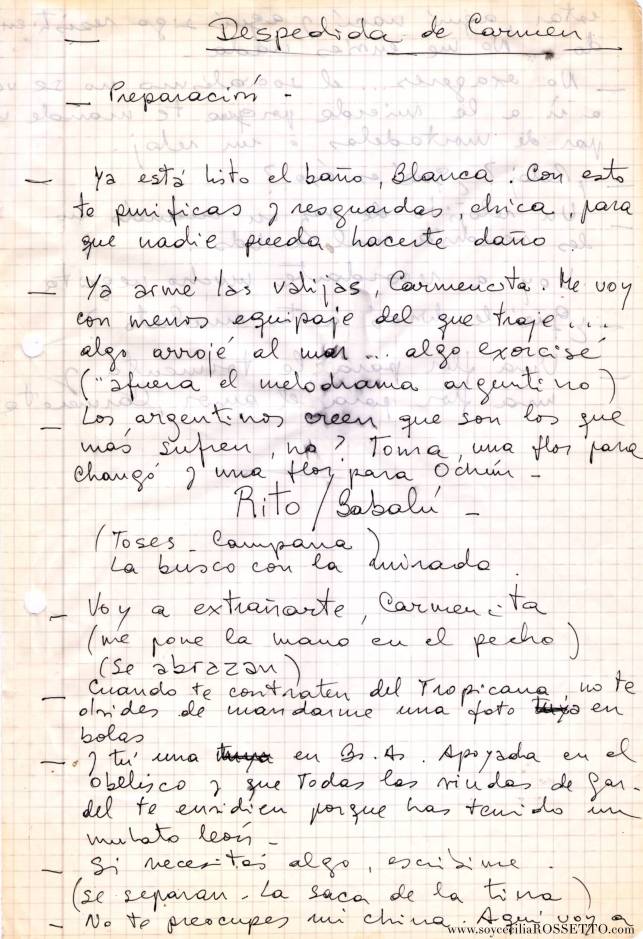 — Despedida de Carmen
— Preparación -
— Ya está listo el baño, Blanca. Con esto
te purificas y resguardas, chica, para
que nadie pueda hacerte daño
— Ya armé las valijas, Carmencita. Me voy
con menos equipaje del que traje ....
algo arrojé al mar ... algo exorcisé
("afuera el melodrama argentino)
— Los argentinos creen que son los que
más sufren, no? Toma, una flor para
changó y una flor para Ochún -
Rito / Babalú -
(Toses - Campana)
La busco con la mirada.
— Voy a extrañarte, Carmencita
(me pone la mano en el pecho)
(Se abrazan)
— Cuando te contraten del Tropicana, no te
olvides de mandarme una foto tuya en
bolas
— Y tú una tuya en Bs. As. Apoyada en el
Obelisco y que Todas las viudas de Gar-
del te envidien porque has tenido un
mulato león -
— Si necesitás algo, escribime.
(se separan. La saca de la tina)
— No te preocupes mi china. Aquí voy a
www.soyceciliaROSSETTO.com